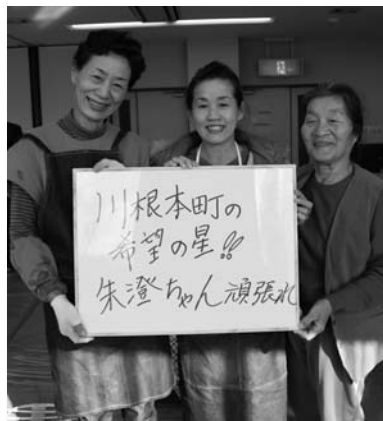 川根本町の
希望の星!!
朱澄ちゃん頑張れ